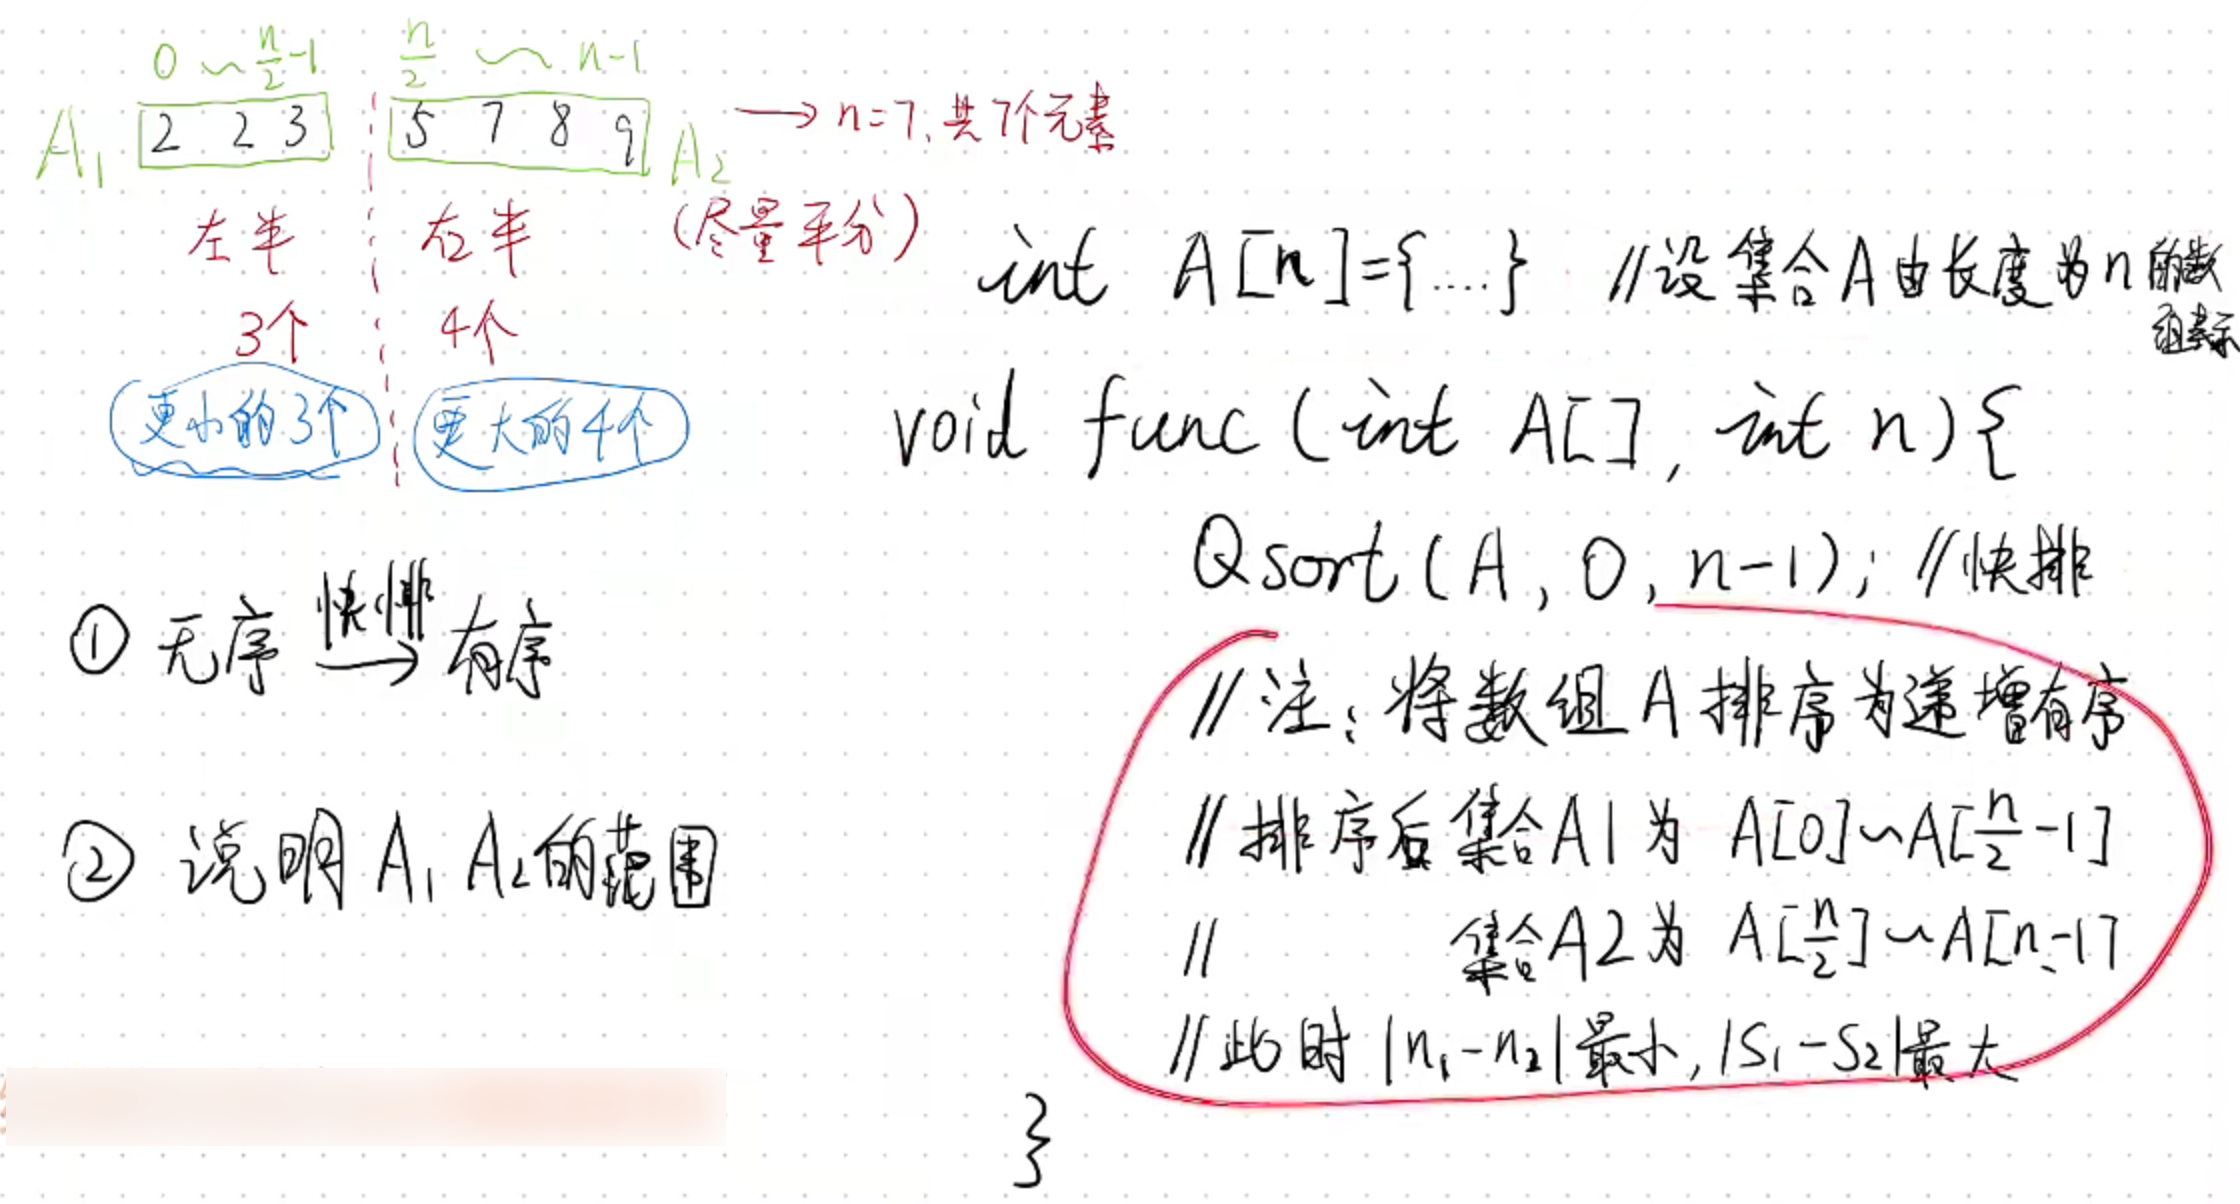 0 ~ n/2-1 n/2 ~ n-1
A1 2 2 3 5 7 8 9 A2 → n=7, 共7个元素
左半 右半 (尽量平分)
3个 4个
更小的3个 更大的4个
① 无序 快排 → 有序
② 说明 A1 A2的范围
int A[n]={....} //设集合A由长度为n的数
组表示
void func (int A[], int n){
Qsort(A, 0, n-1); //快排
//注: 将数组A排序为递增有序
//排序后集合A1为 A[0]~A[n/2-1]
// 集合A2为 A[n/2]~A[n-1]
//此时 |n1-n2|最小, |S1-S2|最大
}